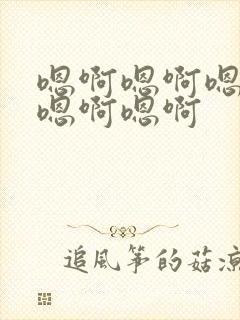 嗯啊嗯啊嗯
嗯啊嗯啊
追風筝的菇凉